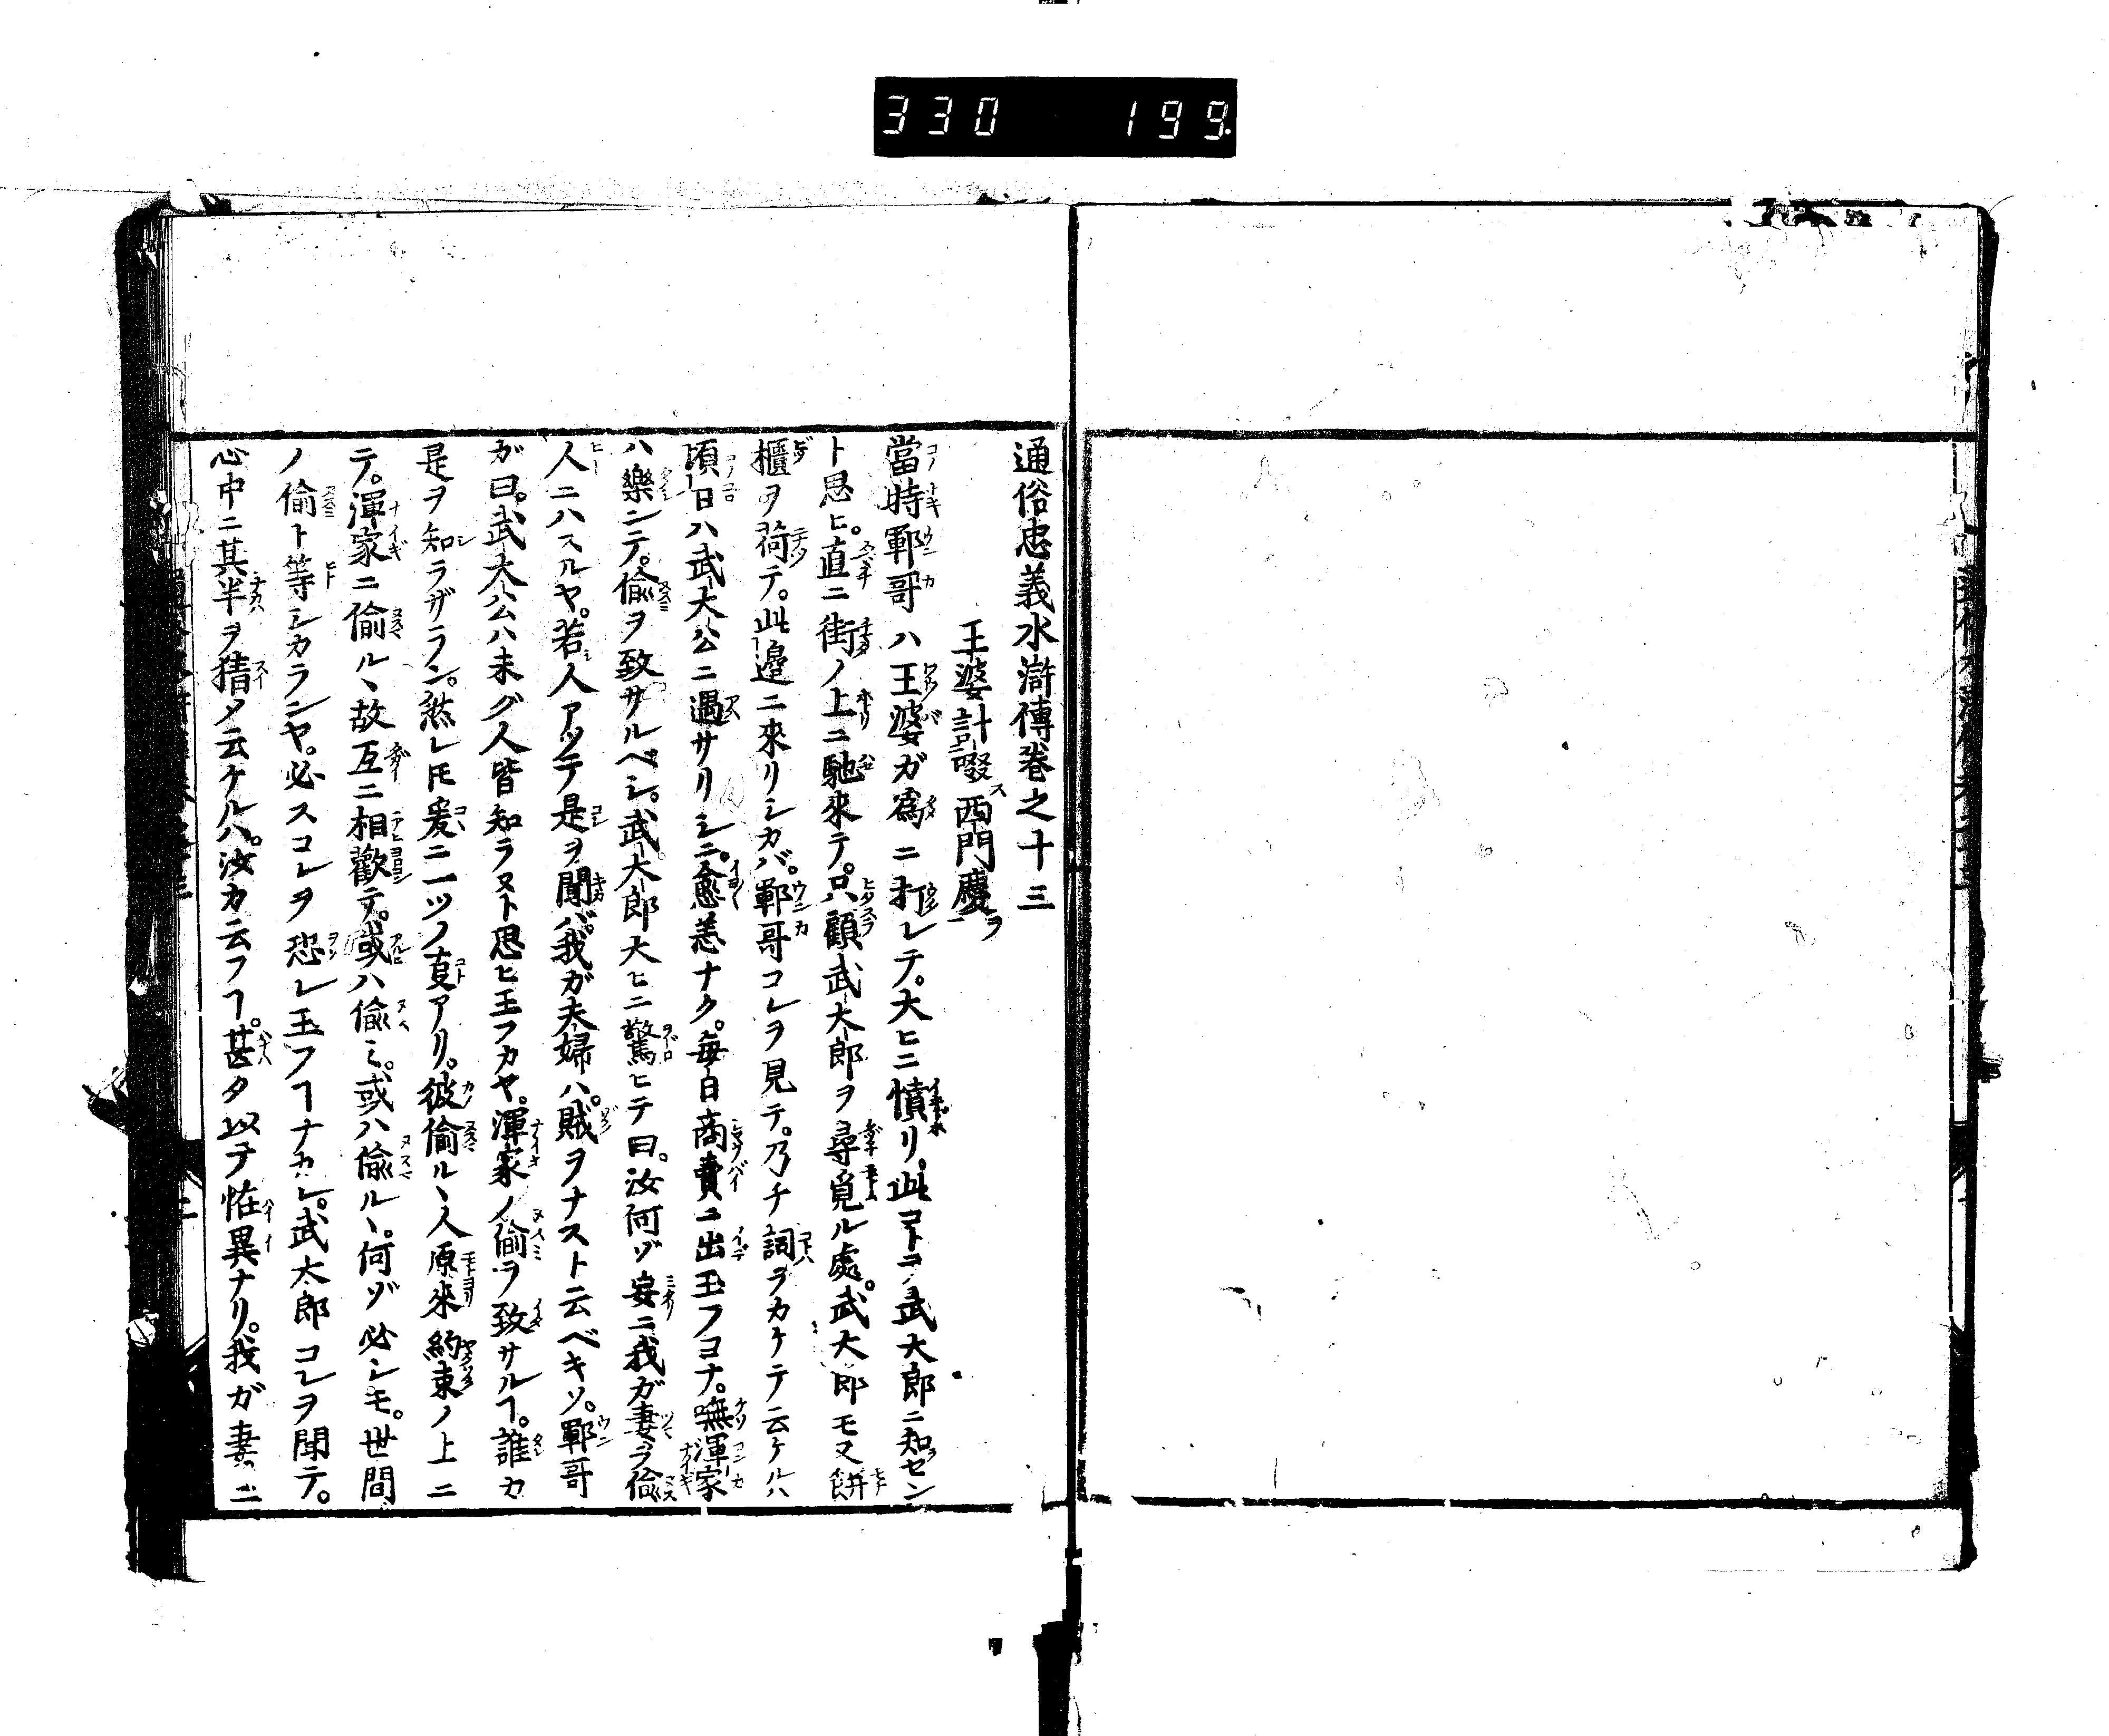 330 199
通俗忠義水滸傳卷之十三
王婆計啜西門慶ヲ
當時鄆哥ハ王婆ガ爲ニ打レテ。大ヒニ憤リ。此コトヲ武大郎ニ知セン
ト思ヒ。直ニ街ノ上ニ馳來テ。只顧武大郎ヲ尋覓ル處。武大郎モ又餅
櫃ヲ荷テ。此邊ニ來リシカバ。鄆哥コレヲ見テ。乃チ詞ヲカケテ云ケルハ
頃日ハ武大公ニ遇サリシニ。愈恙ナク。毎日商賣ニ出玉フヨナ。嘸渾家
ハ樂ンテ。偸ヲ致サルベシ。武大郎大ヒニ驚ヒテ曰。汝何ゾ妄ニ我ガ妻ヲ偸
人ニハスルヤ。若人アツテ是ヲ聞バ。我ガ夫婦ハ。賊ヲナスト云ベキソ。鄆哥
ガ曰。武大公ハ未ダ人皆知ラヌト思ヒ玉フカヤ。渾家ノ偸ヲ致サルヿ。誰カ
是ヲ知ラザラン。然レ𪜈爰ニ一ツノ㕝アリ。彼偸ル丶人原來約束ノ上ニ
テ。渾家ニ偸ル丶故互ニ相歡テ。或ハ偸ミ。或ハ偸ル丶。何ゾ必シモ。世間
ノ偸ト等シカランヤ。必スコレヲ恐レ玉フヿナカレ。武太郎コレヲ聞テ。
心中ニ其半ヲ猜メ云ケルハ。汝カ云フヿ。甚タ以テ恠異ナリ。我ガ妻ニ